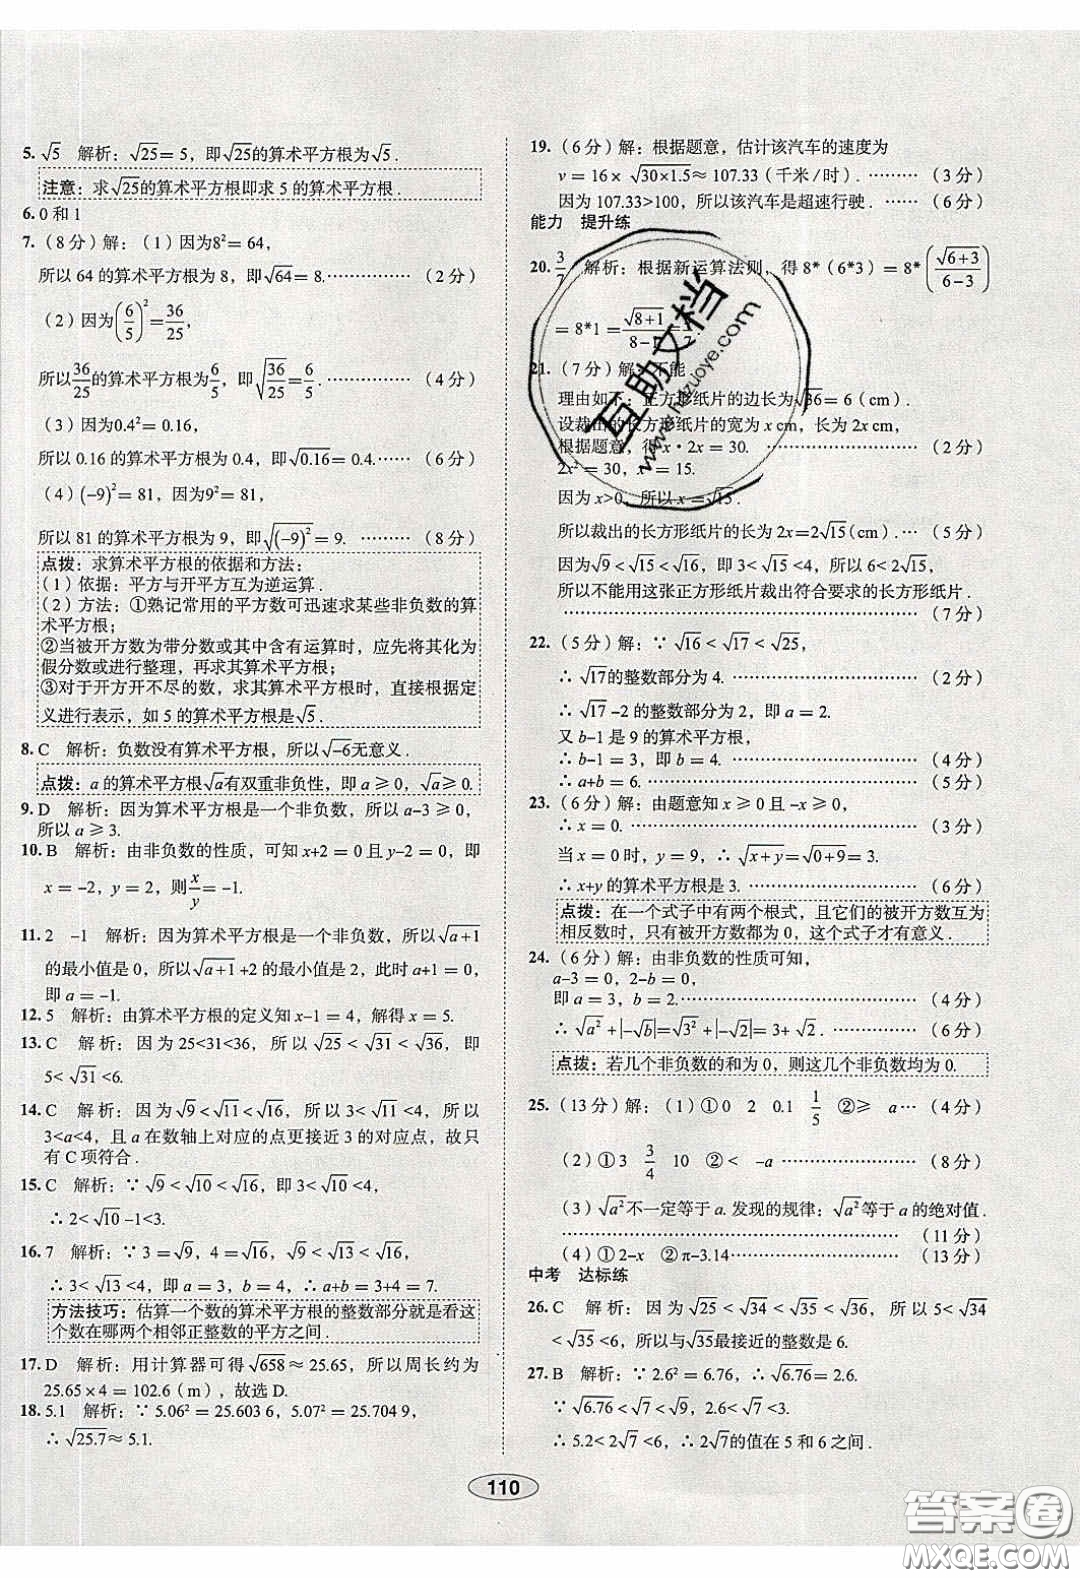 5. √5　解析：√25 = 5，即√25的算术平方根为√5．
注意：求√25的算术平方根即求 5 的算术平方根．
6. 0 和 1
7.（8 分）解：（1）因为8² = 64，
所以 64 的算术平方根为 8，即√64 = 8. ……………（2 分）
（2）因为(6/5)² = 36/25，
所以36/25的算术平方根为6/5，即√(36/25) = 6/5. ……………（4 分）
（3）因为0.4² = 0.16，
所以 0.16 的算术平方根为 0.4，即√0.16 = 0.4. ……（6 分）
（4）(−9)² = 81，因为9² = 81，
所以 81 的算术平方根为 9，即√(−9)² = 9. ………（8 分）
点拨：求算术平方根的依据和方法：
（1）依据：平方与开平方互为逆运算．
（2）方法：①熟记常用的平方数可迅速求某些非负数的算
术平方根；
②当被开方数为带分数或其中含有运算时，应先将其化为
假分数或进行整理，再求其算术平方根；
③对于开方开不尽的数，求其算术平方根时，直接根据定
义进行表示，如 5 的算术平方根是√5．
8. C　解析：负数没有算术平方根，所以√−6无意义．
点拨：a 的算术平方根√a有双重非负性，即 a ⩾ 0，√a ⩾ 0.
9. D　解析：因为算术平方根是一个非负数，所以 a−3 ⩾ 0，
所以 a ⩾ 3.
10. B　解析：由非负数的性质，可知 x+2 = 0 且 y−2 = 0，即
x = −2，y = 2，则x/y = −1.
11. 2　−1　解析：因为算术平方根是一个非负数，所以√(a+1)
的最小值是 0，所以√(a+1) +2 的最小值是 2，此时 a+1 = 0，
即 a = −1.
12. 5　解析：由算术平方根的定义知 x−1 = 4，解得 x = 5.
13. C　解析：因为 25<31<36，所以√25 < √31 < √36，即
5< √31 <6.
14. C　解析：因为√9 < √11 < √16，所以 3< √11 <4，所以
3<a<4，且 a 在数轴上对应的点更接近 3 的对应点，故只
有 C 项符合．
15. C　解析：∵ √9 < √10 < √16，即 3< √10 <4，
∴ 2< √10 −1<3.
16. 7　解析：∵ 3 = √9，4 = √16，√9 < √13 < √16，
∴ 3< √13 <4，即 a = 3，b = 4，∴ a+b = 3+4 = 7.
方法技巧：估算一个数的算术平方根的整数部分就是看这
个数在哪两个相邻正整数的平方之间．
17. D　解析：用计算器可得√658 ≈ 25.65，所以周长约为
25.65 × 4 = 102.6（m），故选 D.
18. 5.1　解析：∵ 5.06² = 25.603 6，5.07² = 25.704 9，
∴ √25.7 ≈ 5.1.
19.（6 分）解：根据题意，估计该汽车的速度为
v = 16× √(30×1.5) ≈ 107.33（千米/时）. ………（3 分）
因为 107.33>100，所以该汽车是超速行驶．……（6 分）
能力　提升练
20. 3/7　解析：根据新运算法则，得 8*（6*3）= 8*(√(6+3)/(6−3))
= 8*1 = √(8+1)/(8−1) = 3/7．
21.（7 分）解：不能．
理由如下：正方形纸片的边长为√36 = 6（cm）.
设裁出的长方形纸片的宽为 x cm，长为 2x cm，
根据题意，得 x · 2x = 30. ……………（2 分）
2x² = 30，x² = 15.
因为 x>0，所以 x = √15．
所以裁出的长方形纸片的长为 2x=2√15(cm). …（5 分）
因为√9 < √15 < √16，即 3< √15 <4，所以 6< 2√15，
所以不能用这张正方形纸片裁出符合要求的长方形纸片．
……………（7 分）
22.（5 分）解：∵ √16 < √17 < √25，
∴ √17的整数部分为 4. ……………（2 分）
∴ √17 −2 的整数部分为 2，即 a = 2.
又 b−1 是 9 的算术平方根，
∴ b−1 = 3，即 b = 4. ……………（4 分）
∴ a+b = 6. ……………（5 分）
23.（6 分）解：由题意知 x ⩾ 0 且 −x ⩾ 0，
∴ x = 0. ……………（3 分）
当 x = 0 时，y = 9，∴ √(x+y) = √(0+9) = 3.
∴ x+y 的算术平方根是 3. ……………（6 分）
点拨：在一个式子中有两个根式，且它们的被开方数互为
相反数时，只有被开方数都为 0，这个式子才有意义．
24.（6 分）解：由非负数的性质可知，
a−3 = 0，2−b = 0，
即 a = 3，b = 2. ……………（4 分）
∴ √a² + |−√b| = √3² + |−√2| = 3+ √2．……………（6 分）
点拨：若几个非负数的和为 0，则这几个非负数均为 0.
25.（13 分）解：（1）①0　2　0.1　1/5　②⩾　a …（4 分）
（2）①3　3/4　10　②<　−a ……………（8 分）
（3）√a²不一定等于 a. 发现的规律：√a²等于 a 的绝对值．
……………（11 分）
（4）①2−x　②π−3.14 ……………（13 分）
中考　达标练
26. C　解析：因为√25 < √34 < √35 < √36，所以 5< √34
< √35 <6，所以与√35最接近的整数是 6.
27. B　解析：∵ 2.6² = 6.76，∴ √6.76 = 2.6.
∵ √6.76 < √7 < √9，2.6< √7 <3.
∴ 5.2< 2√7 <6，∴ 2√7 的值在 5 和 6 之间．
110
互助文档
www.hdzuoye.com
答案圈
MXQE.COM